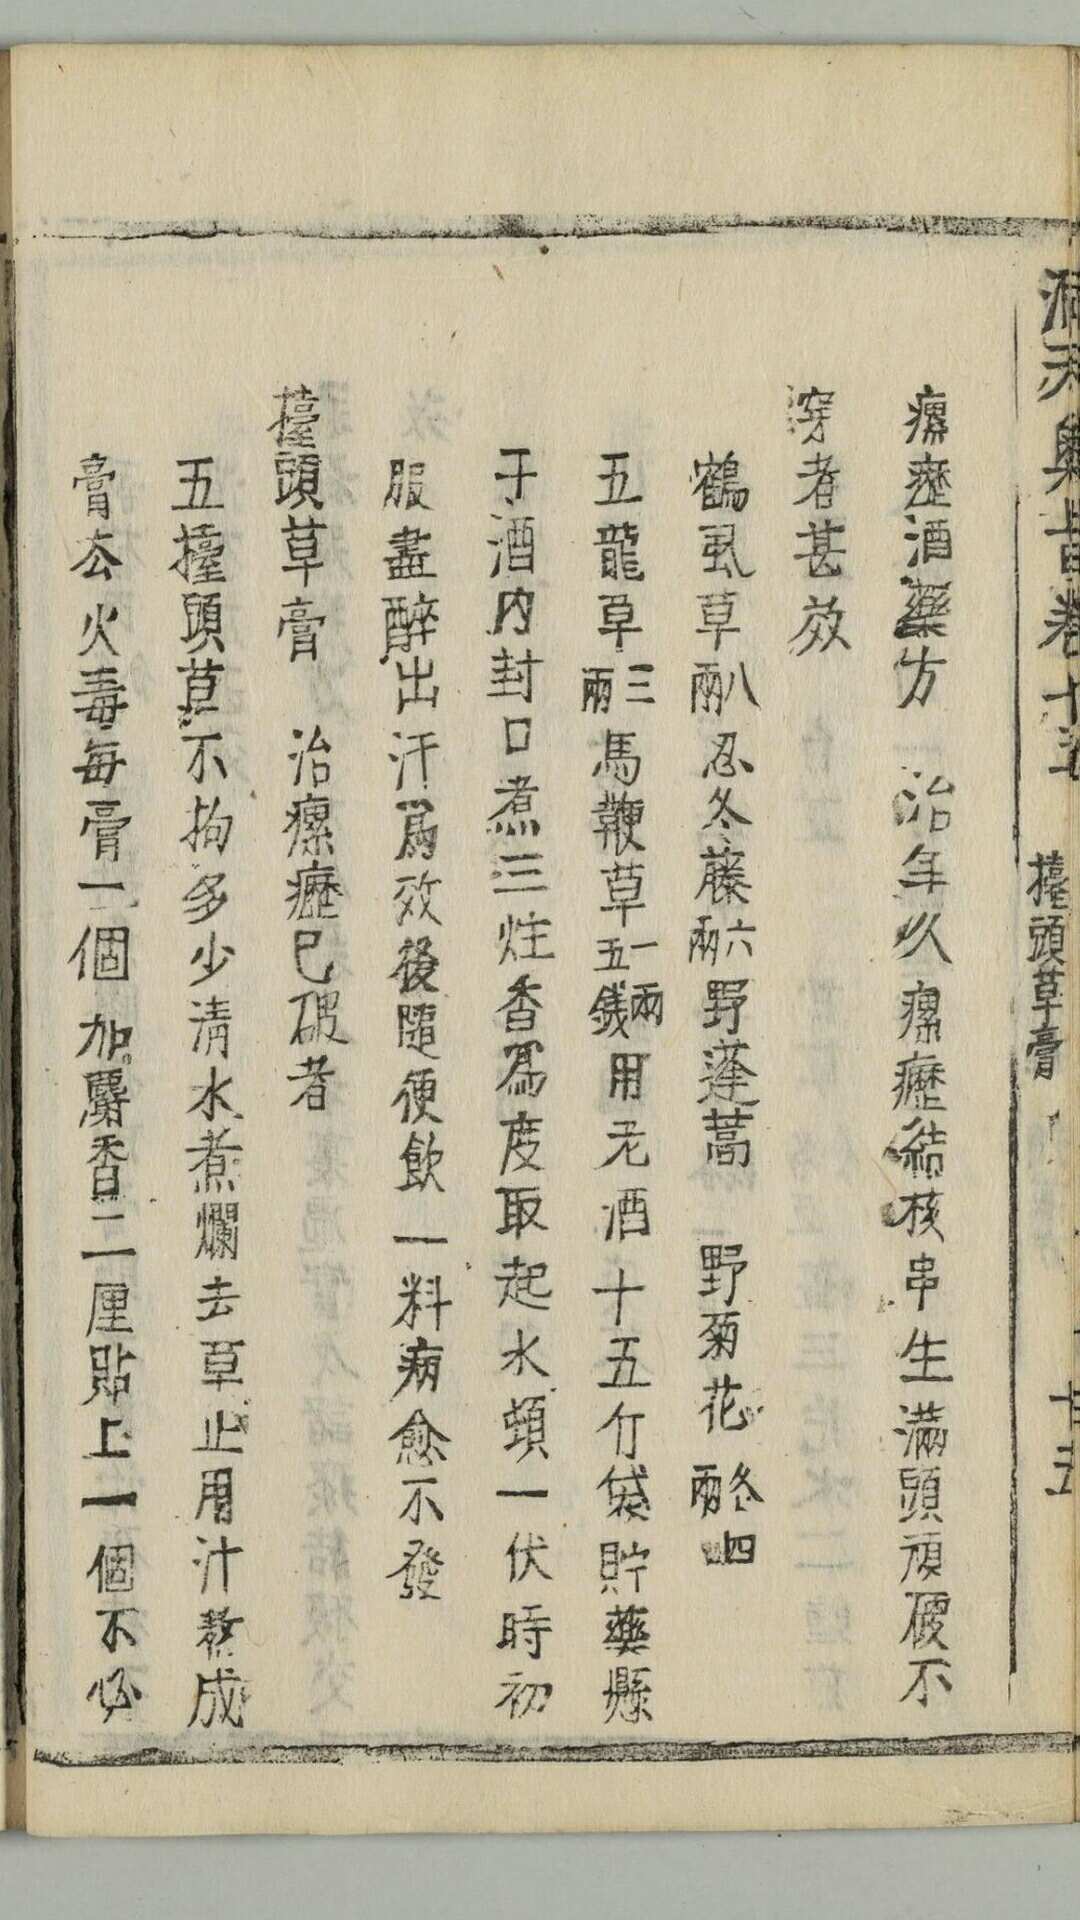 洞天奧旨卷十五 擡頭草膏 廿五
瘰癧酒藥方 治年久瘰癧結核串生滿頭頑硬不
穿者甚效
鶴虱草八兩忍冬藤六兩野蓬蒿 野菊花各四兩
五龍草三兩馬鞭草一兩五錢用老酒十五斤袋貯藥懸
于酒内封口煮三炷香爲度取起水頓一伏時初
服盡醉出汗爲效後隨便飲一料病愈不發
擡頭草膏 治瘰癧已破者
五擡頭草不拘多少清水煮爛去草止用汁熬成
膏去火毒每膏一個加麝香二厘貼上一個不必